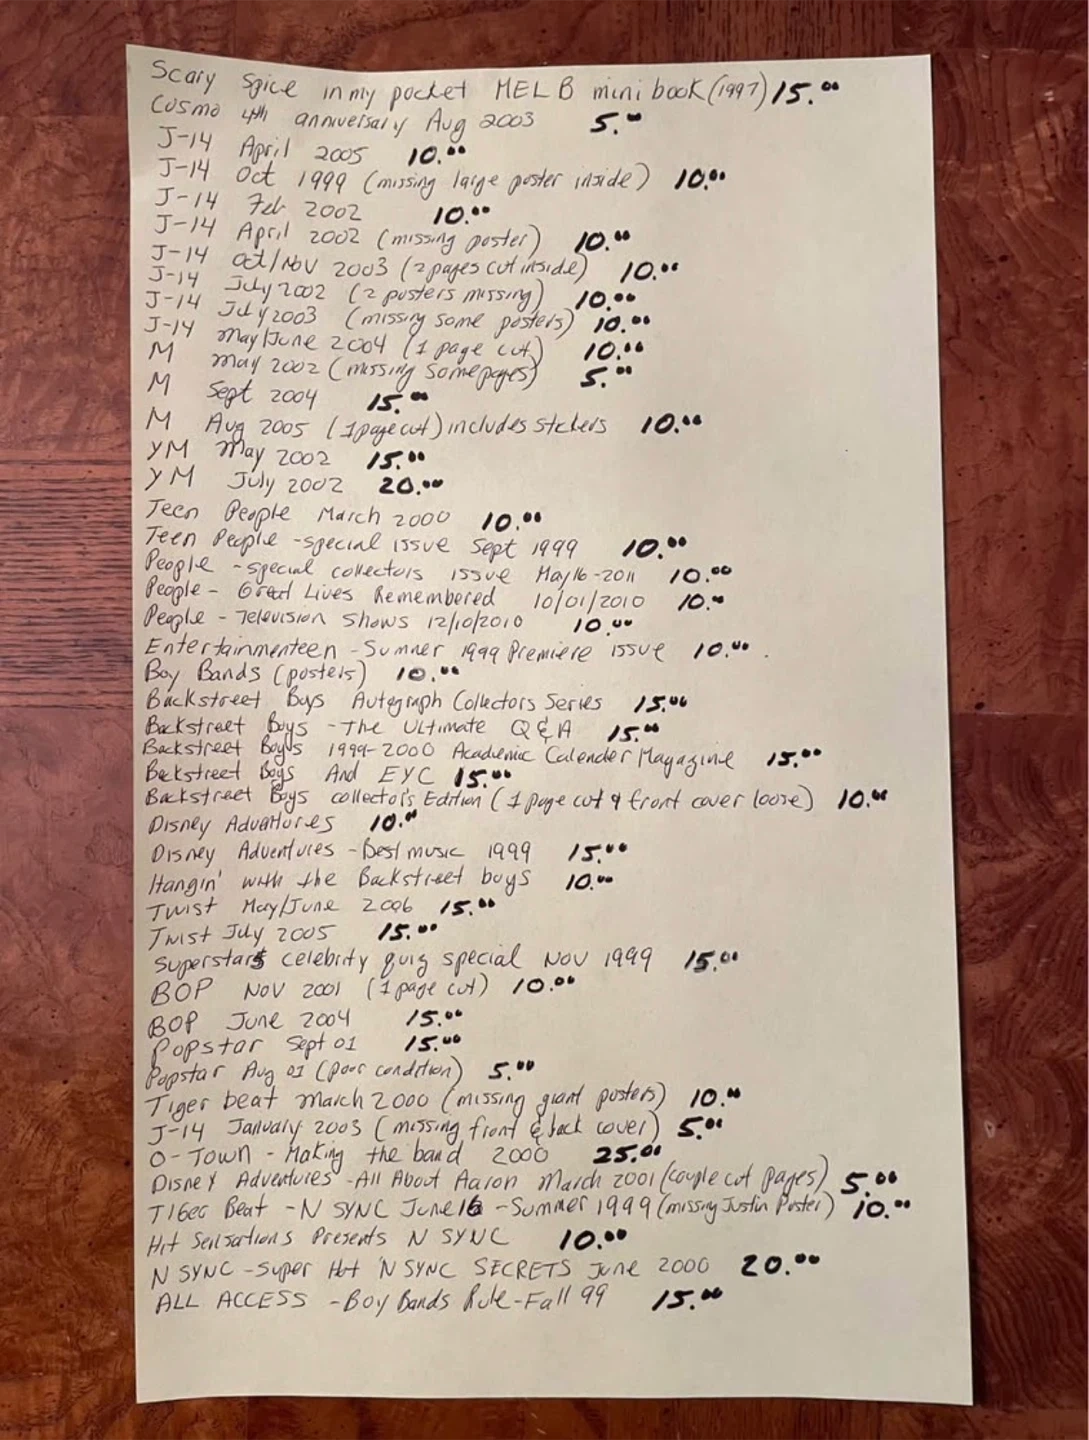 Scary Spice in my pocket MEL B mini book (1997) 15.00
Cosmo 4th anniversary Aug 2003 5.00
J-14 April 2005 10.00
J-14 Oct 1999 (missing large poster inside) 10.00
J-14 Feb 2002 10.00
J-14 April 2002 (missing poster) 10.00
J-14 Oct/Nov 2003 (2 pages cut inside) 10.00
J-14 July 2002 (2 posters missing) 10.00
J-14 July 2003 (missing some posters) 10.00
J-14 May/June 2004 (1 page cut) 10.00
M May 2002 (missing some pages) 5.00
M Sept 2004 15.00
M Aug 2005 (1 page cut) includes stickers 10.00
YM May 2002 15.00
YM July 2002 20.00
Teen People March 2000 10.00
Teen People - special issue Sept 1999 10.00
People - special collectors issue May 16 - 2011 10.00
People - Great Lives Remembered 10/01/2010 10.00
People - Television Shows 12/10/2010 10.00
Entertainmenteen - Summer 1999 Premiere issue 10.00
Boy Bands (posters) 10.00
Backstreet Boys Autograph Collectors Series 15.00
Backstreet Boys - The Ultimate Q & A 15.00
Backstreet Boys 1999-2000 Academic Calender Magazine 15.00
Backstreet Boys And EYC 15.00
Backstreet Boys collector's Edition (1 page cut & front cover loose) 10.00
Disney Adventures 10.00
Disney Adventures - Best music 1999 15.00
Hangin' with the Backstreet boys 10.00
Twist May/June 2006 15.00
Twist July 2005 15.00
Superstars celebrity quiz special Nov 1999 15.00
BOP Nov 2001 (1 page cut) 10.00
BOP June 2004 15.00
Popstar Sept 01 15.00
Popstar Aug 01 (poor condition) 5.00
Tiger beat March 2000 (missing giant posters) 10.00
J-14 January 2003 (missing front & back cover) 5.00
O-Town - Making the band 2000 25.00
Disney Adventures - All About Aaron March 2001 (couple cut pages) 5.00
Tiger Beat - N SYNC June 16 - Summer 1999 (missing Justin Poster) 10.00
Hit Sensations Presents N SYNC 10.00
N SYNC - Super Hot 'N SYNC SECRETS June 2000 20.00
ALL ACCESS - Boy Bands Rule - Fall 99 15.00